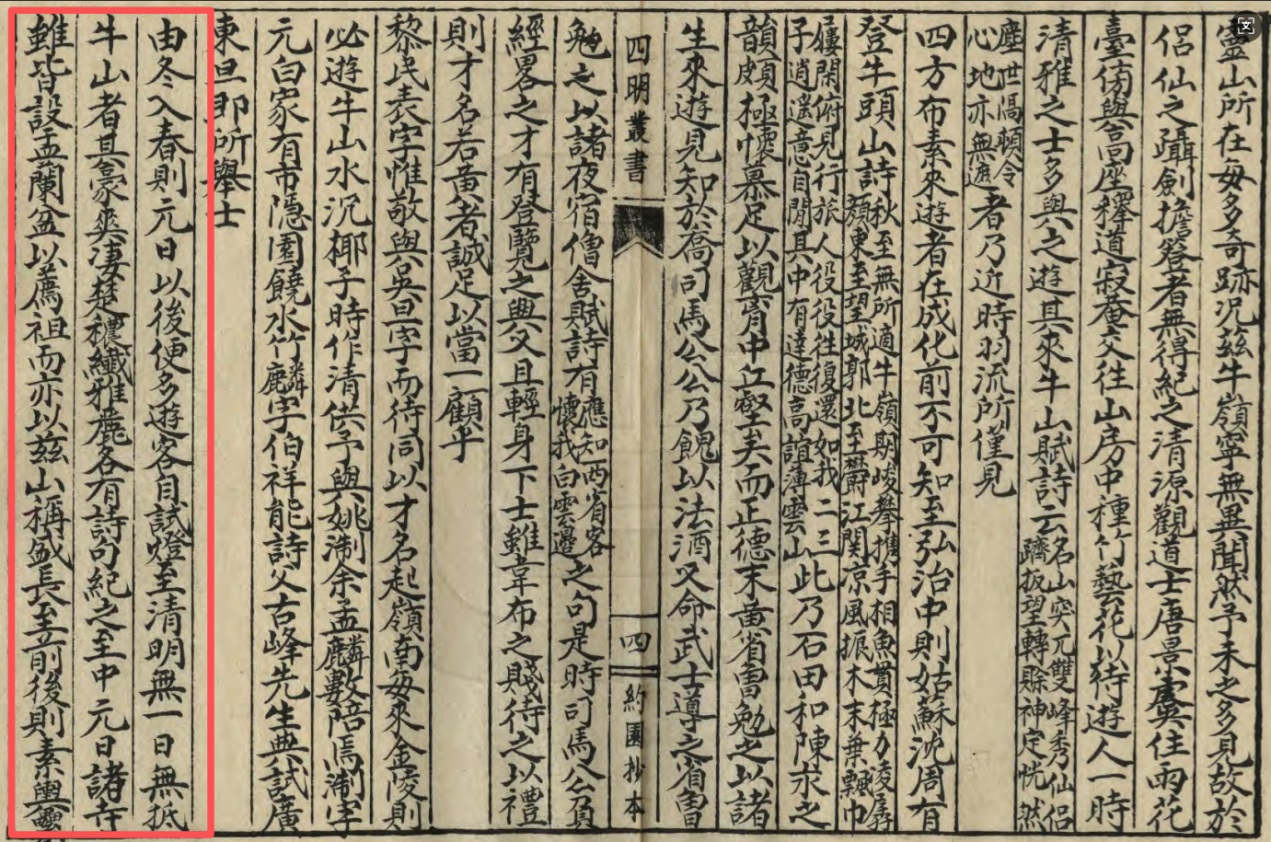 靈山所在每多奇跡況茲牛嶺寧無異聞然予未之多見故於
侶仙之躡劍擔簦者無得紀之清源觀道士唐景虞住雨花
臺傍與高座釋道寂菴交往山房中種竹藝花以待遊人一時
清雅之士多與之遊其來牛山賦詩云名山突兀雙峰秀仙侶
躋扳望轉賒神定恍然
塵世隔頓令
心地亦無遮者乃近時羽流所僅見
四方布素來遊者在成化前不可知至弘治中則姑蘇沈周有
登牛頭山詩秋至無所適牛嶺期峻攀攜手相魚貫極力凌孱
顏東至望城郭北至欝江關凉風振木末葉輒巾
屨閑俯見行旅人役役往復還如我二三
子逍遥意自閒其中有達德高誼薄雲山此乃石田和陳永之
韻頗極懷慕足以觀胷中丘壑矣而正德末黄省曾勉之以諸
生來遊見知於喬司馬公公乃餽以法酒又命武士導之省曾
四明叢書
四
約園抄本
勉之以諸夜宿僧舍賦詩有應知西省客
懷我白雲邊之句是時司馬公負
經畧之才有登覽之興父且輕身下士雖韋布之賤待之以禮
則才名若黄者誠足以當一顧乎
黎民表字惟敬與吳旦字而待同以才名起嶺南每來金陵則
必遊牛山水沉椰子時作清供予與姚淛余孟麟數陪焉淛字
元白家有市隱園饒水竹麟字伯祥能詩父古峰先生典試廣
東旦即所舉士
由冬入春則元日以後便多遊客自試燈至清明無一日無抵
牛山者其豪爽凄楚穠纖雅麗各有詩句紀之至中元日諸寺
雖皆設盂蘭盆以薦祖而亦以茲山稱盛長至前後則素輿